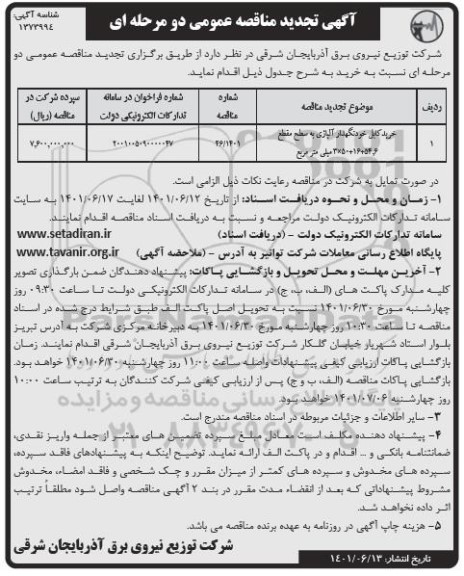 شناسه آگهی:
۱۳۷۳۹۹۴
آگهی تجدید مناقصه عمومی دو مرحله ای
شرکت توزیع نیروی برق آذربایجان شرقی در نظر دارد از طریق برگزاری تجدید مناقصه عمومی دو
مرحله ای نسبت به خرید به شرح جدول ذیل اقدام نماید.
ردیف
موضوع تجدید مناقصه
شماره مناقصه
شماره فراخوان در سامانه تدارکات الکترونیکی دولت
سپرده شرکت در مناقصه (ریال)
۱
خرید کابل خودنگهدار آلیاژی به سطح مقطع
۳×۵۰+۱۶+۵۴.۶ میلی متر مربع
۴۶/۱۴۰۱
۲۰۰۱۰۰۵۰۹۰۰۰۰۰۴۷
۷,۶۰۰,۰۰۰,۰۰۰
در صورت تمایل به شرکت در مناقصه رعایت نکات ذیل الزامی است.
۱- زمان و محل و نحوه دریافت اسناد: از تاریخ ۱۴۰۱/۰۶/۱۲ لغایت ۱۴۰۱/۰۶/۱۷ به سایت
سامانه تدارکات الکترونیک دولت مراجعه و نسبت به دریافت اسناد مناقصه اقدام نمایند.
سامانه تدارکات الکترونیک دولت - (دریافت اسناد) www.setadiran.ir
پایگاه اطلاع رسانی معاملات شرکت توانیر به آدرس - (ملاحضه آگهی) www.tavanir.org.ir
۲- آخرین مهلت و محل تحویل و بازگشایی پاکات: پیشنهاد دهندگان ضمن بارگذاری تصویر
کلیه مدارک پاکت های (الف، ب، ج) در سامانه تدارکات الکترونیکی دولت تا ساعت ۰۹:۳۰ روز
چهارشنبه مورخ ۱۴۰۱/۰۶/۳۰ نسبت به تحویل اصل پاکت الف طبق شرایط درج شده در اسناد
مناقصه تا ساعت ۱۰:۳۰ روز چهارشنبه مورخ ۱۴۰۱/۰۶/۳۰ به دبیرخانه مرکزی شرکت به آدرس تبریز
بلوار استاد شهریار خیابان گلکار شرکت توزیع نیروی برق آذربایجان شرقی اقدام نمایند. زمان
بازگشایی پاکات ارزیابی کیفی پیشنهادات واصله ساعت ۱۱:۰۰ روز چهارشنبه ۱۴۰۱/۰۶/۳۰ خواهد بود.
بازگشایی پاکات مناقصه (الف، ب و ج) پس از ارزیابی کیفی شرکت کنندگان به ترتیب ساعت ۱۰:۰۰
روز چهارشنبه ۱۴۰۱/۰۷/۰۶ خواهد بود.
۳- سایر اطلاعات و جزئیات مربوطه در اسناد مناقصه مندرج است.
۴- پیشنهاد دهنده مکلف است معادل مبلغ سپرده تضمین های معتبر از جمله واریز نقدی،
ضمانتنامه بانکی و ... اقدام و در پاکت الف ارائه نماید. توضیح اینکه به پیشنهادهای فاقد سپرده،
سپرده های مخدوش و سپرده های کمتر از میزان مقرر و چک شخصی و فاقد امضاء، مخدوش
مشروط پیشنهاداتی که بعد از انقضاء مدت مقرر در بند ۲ آگهی مناقصه واصل شود مطلقاً ترتیب
اثر داده نخواهد شد.
۵- هزینه چاپ آگهی در روزنامه به عهده برنده مناقصه می باشد.
شرکت توزیع نیروی برق آذربایجان شرقی
تاریخ انتشار: ۱۴۰۱/۰۶/۱۳